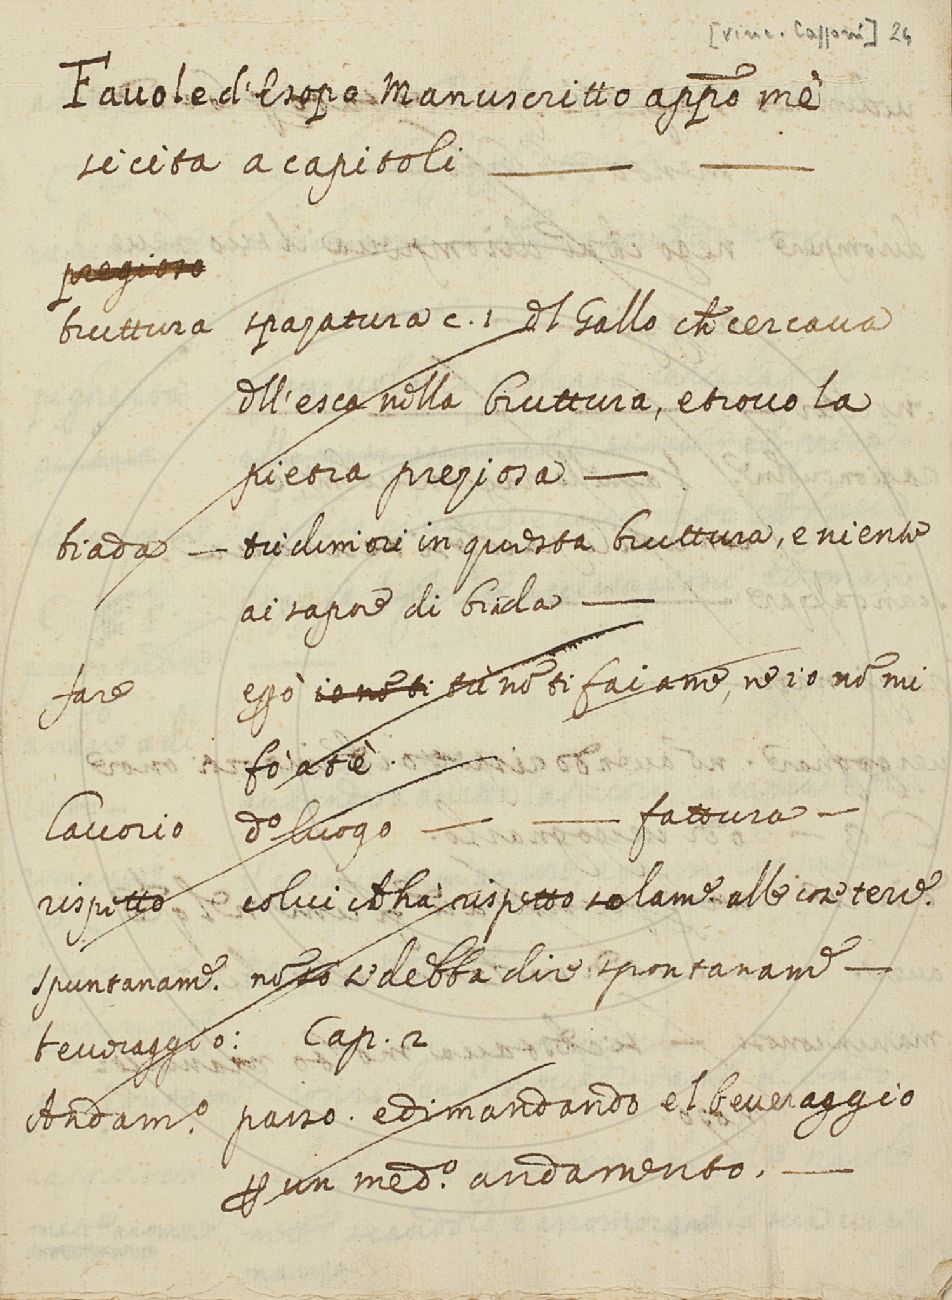 [Vinc. Capponi] 24
Fauole d'Esopo Manuscritto appō mè
si cita a capitoli — —
pregioso
bruttura spazatura c. 1 Dl Gallo ch̄ cercaua
dll'esca nella bruttura, e trouo la
pietra preziosa —
biada — tu dimori in questa bruttura, e niente
ai sapore di biada —
fare egō io nō ti tù nō ti fai a me, ne io nō mi
fò a tè.
lauorio do luogo — — fattura —
rispetto colui ch hà rispetto solam̄. alle cose terē.
spuntanam̄. nō so se debba dire spontanam̄ —
beueraggio: Cap. 2
Andam.o passo. e dimandando el beueraggio
un med.o andamento. —